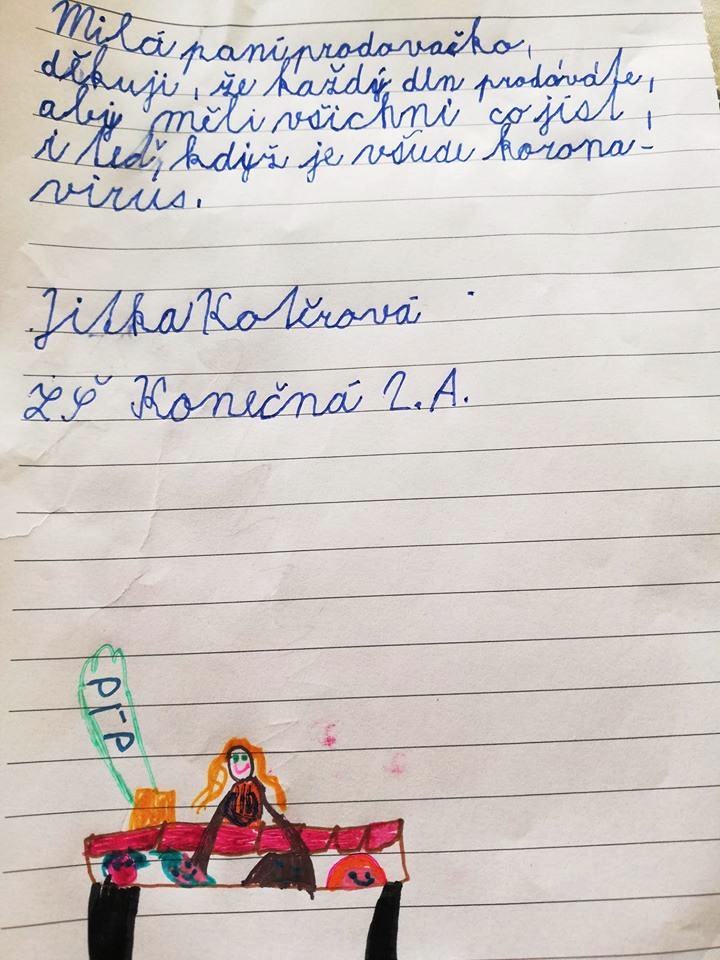 Milá paní prodavačko,
děkuji, že každý den prodáváte,
aby měli všichni co jíst,
i teď, když je všude korona-
virus.
Jitka Kotěrová
ZŠ Konečná 2.A.
píp